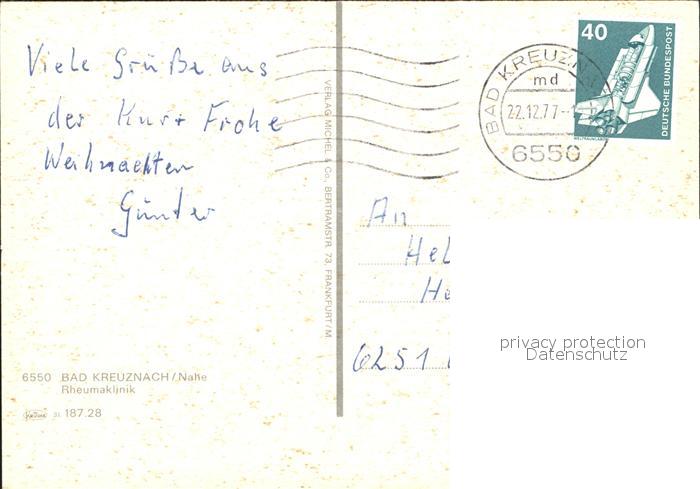 Viele Grüße aus
der Kur + Frohe
Weihnachten
Günter
VERLAG MICHEL & Co., BERTRAMSTR. 73, FRANKFURT/M
6550 BAD KREUZNACH/Nahe
Rheumaklinik
31 187.28
40
DEUTSCHE BUNDESPOST
BAD KREUZN
md
22.12.77
6550
An
Hel
He
6251
privacy protection
Datenschutz